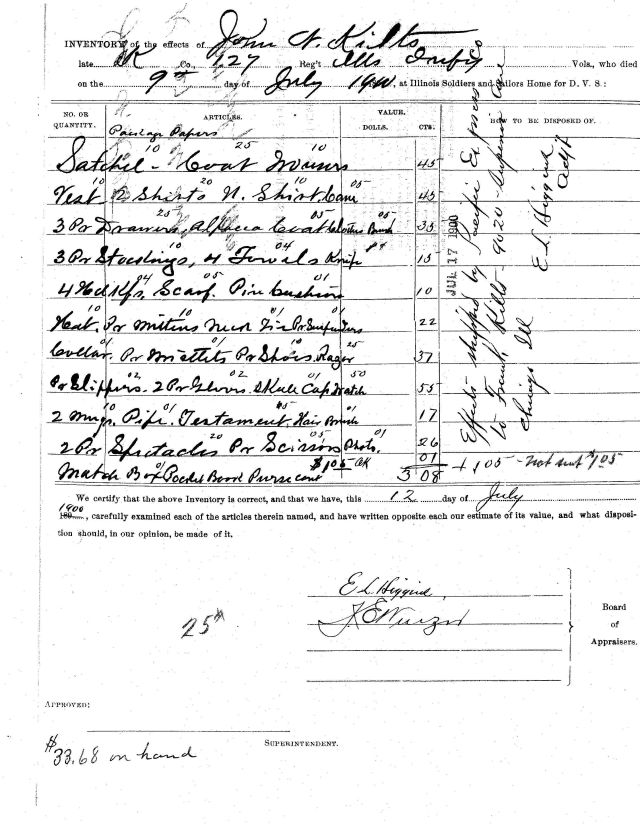 INVENTORY of the effects of John N. Kilts
late K Co., 127 Reg't Ills Infy Vols., who died
on the 9th day of July 1900, at Illinois Soldiers and Sailors Home for D. V. S.:
NO. OR QUANTITY. ARTICLES. VALUE. DOLLS. CTS. HOW TO BE DISPOSED OF.
Package Papers
10 25 10
Satchel - Coat Trousers 45
10 20 10 05
Vest 2 Shirts N. Shirt. Cane 45
25 05 05
3 Pr Drawers, Alpaca Coat Clothes Brush 35
10 04 01
3 Pr Stockings, 4 Towels Knife 15
04 05 01
4 Hdkfs, Scarf. Pin Cushion 10
10 01 01
Hat. Pr Mittens Neck Tie Pr Suspenders 22
01 01 10 25
Collar. Pr Wristlets Pr Shoes. Razor 37
02 02 01 50
Pr Slippers. 2 Pr Gloves. Skull Cap Watch 55
10 01 05 01
2 mugs. Pipe. Testament. Hair Brush 17
20 05 01
2 Pr Spectacles Pr Scissors Photo. 26
01 $1.05 OK 01
Match Box Pocket Book Purse cont 3 08 + 1 05 - not out $1.05
Effects shipped by Pacific Express
to Frank Kilts - 9020 Superior Ave
Chicago Ill
E L Higgins
Adjt
JUL 17 1900
We certify that the above Inventory is correct, and that we have, this 12 day of July
1900
189, carefully examined each of the articles therein named, and have written opposite each our estimate of its value, and what disposi-
tion should, in our opinion, be made of it.
E L Higgins,
25
Board
of
Appraisers.
APPROVED:
SUPERINTENDENT.
$33.68 on hand